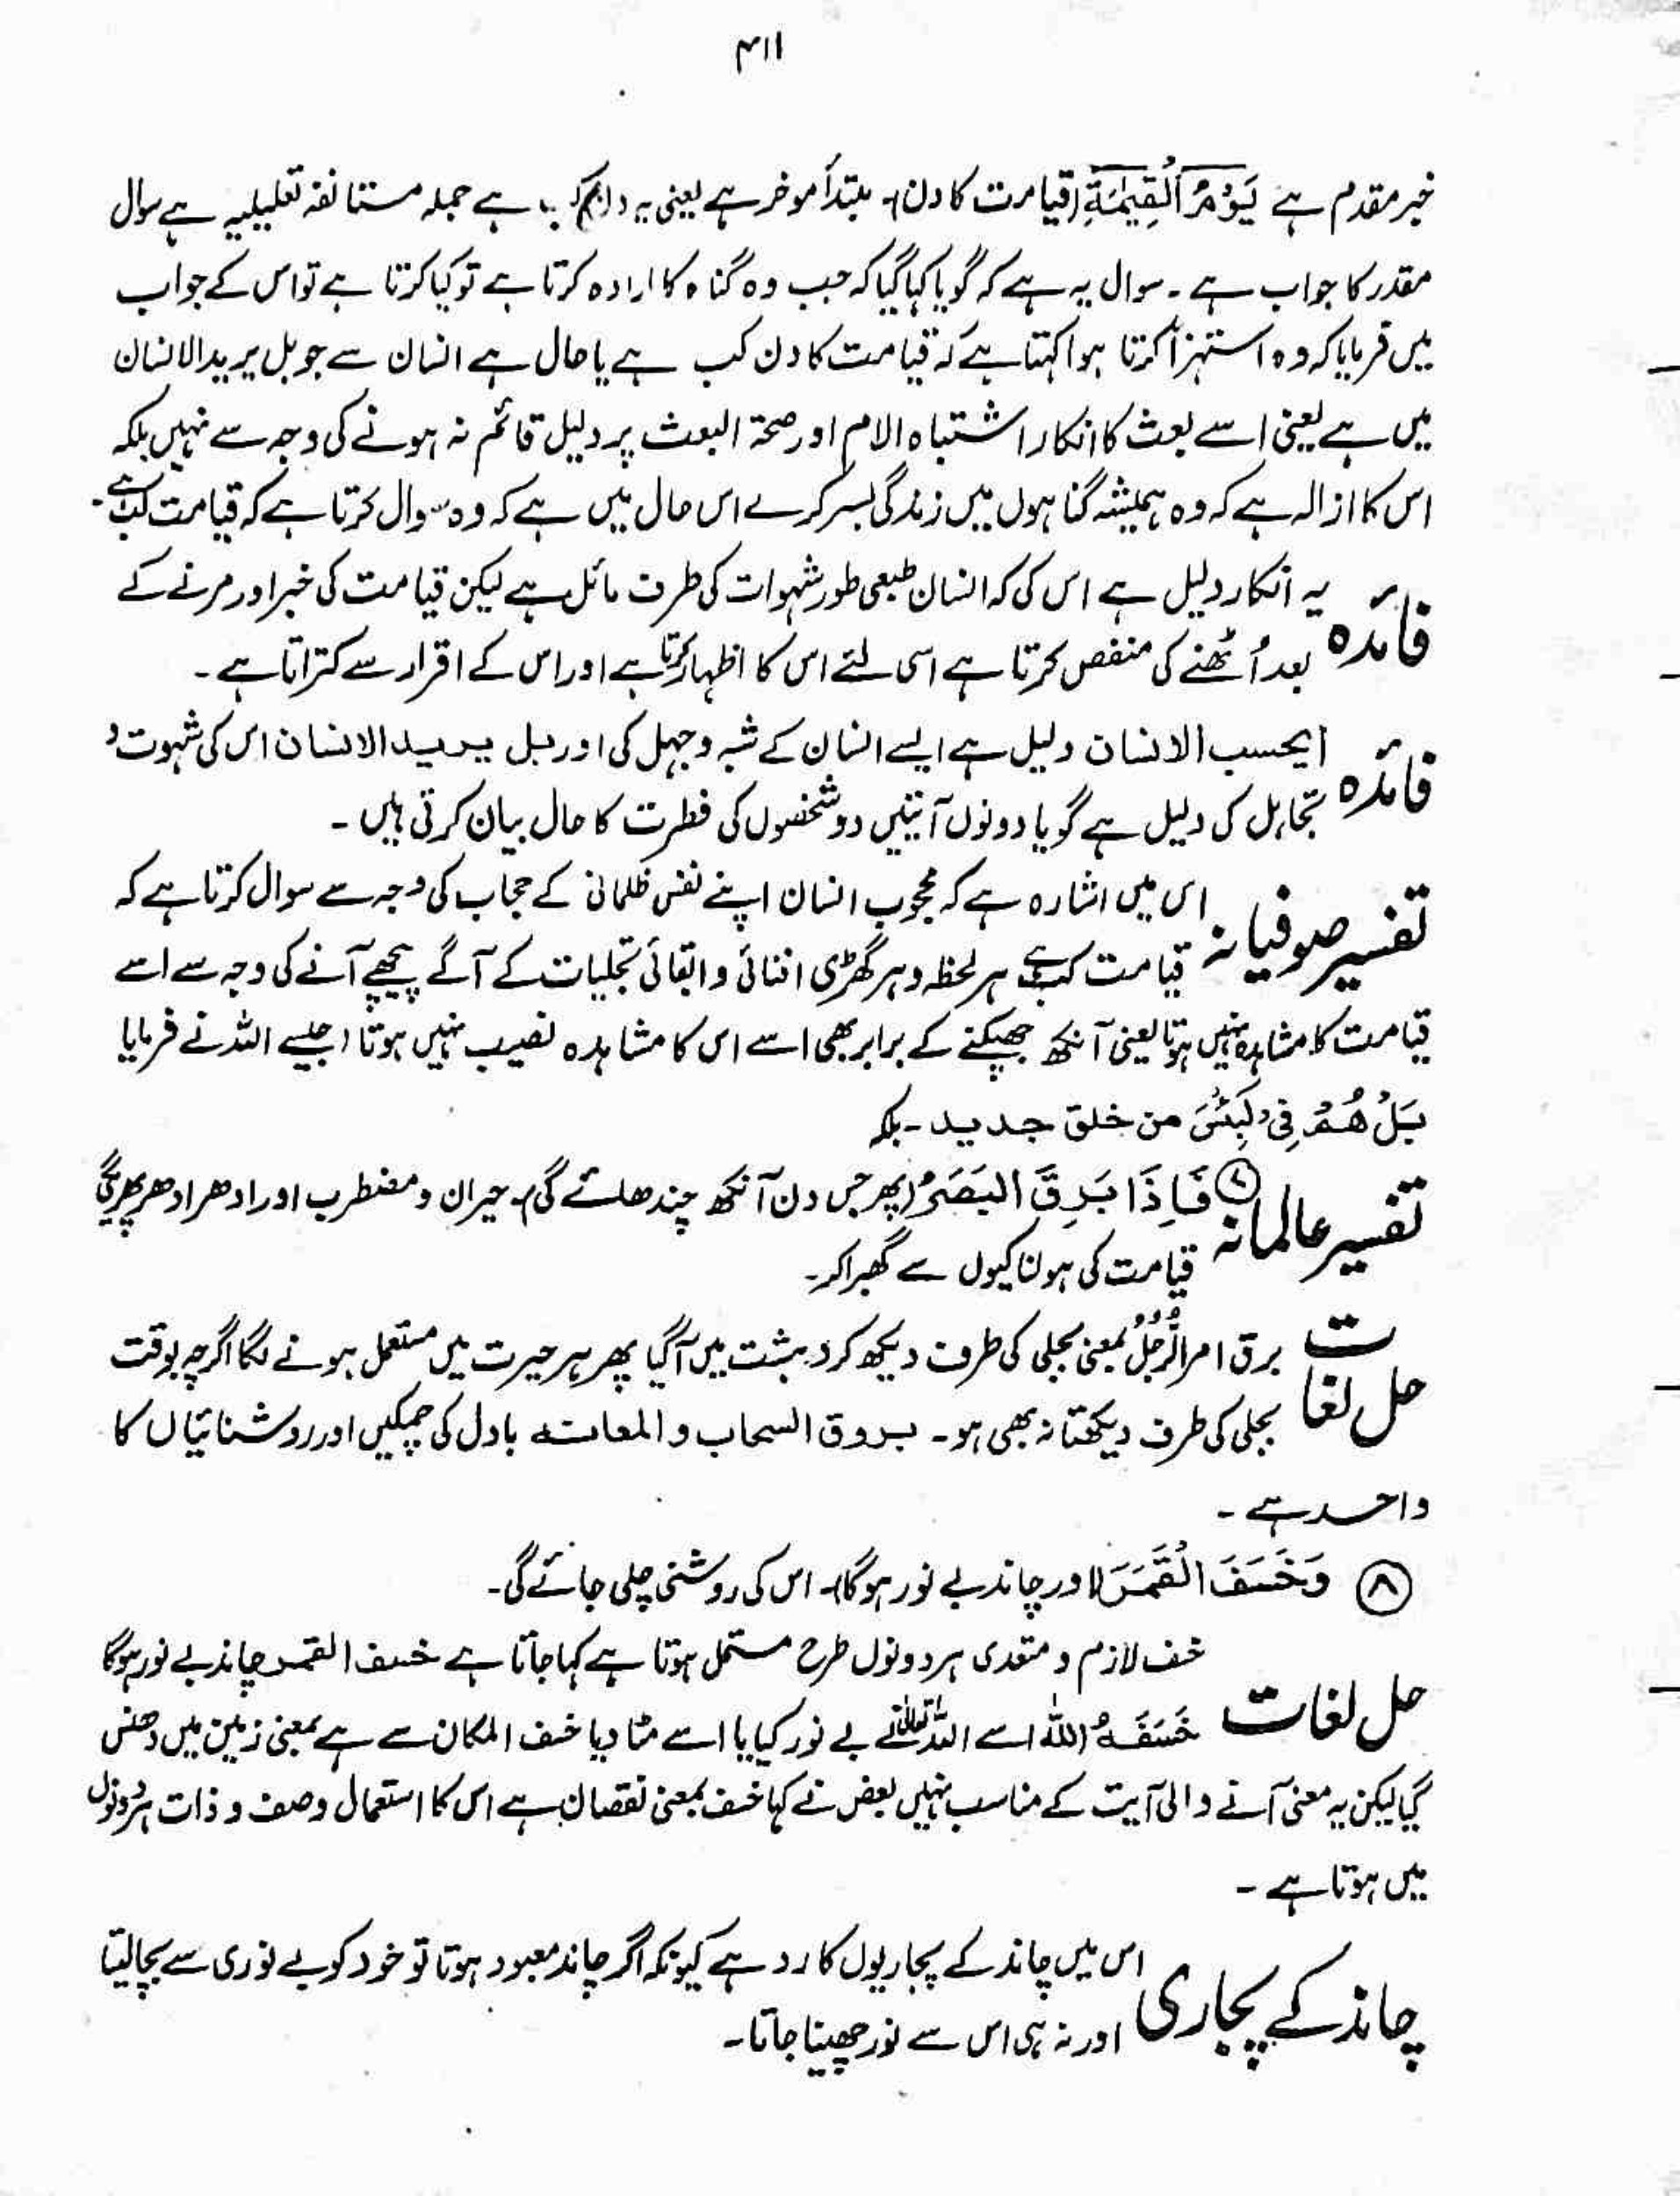 ۴۱۱
خبر مقدم ہے یَوْمُ الْقِیٰمَةِ (قیامت کا دن)۔ مبتدأ موخر ہے یعنی یہ دن کب ہے جملہ مستانفہ تعلیلیہ ہے سوال
مقدر کا جواب ہے ۔ سوال یہ ہے کہ گویا کہا گیا کہ جب وہ گناہ کا ارادہ کرتا ہے تو کیا کرتا ہے تو اس کے جواب
میں فرمایا کہ وہ استہزأ کرتا ہوا کہتا ہے کہ قیامت کا دن کب ہے یا حال ہے انسان سے جو بل یرید الانسان
میں ہے یعنی اسے بعث کا انکار اشتباہ الامر اور صحۃ البعث پر دلیل قائم نہ ہونے کی وجہ سے نہیں بلکہ
اس کا ازالہ ہے کہ وہ ہمیشہ گناہوں میں زندگی بسر کرے اس حال میں ہے کہ وہ سوال کرتا ہے کہ قیامت کب ہے۔
فائدہ یہ انکار دلیل ہے اس کی کہ انسان طبعی طور شہوات کی طرف مائل ہے لیکن قیامت کی خبر اور مرنے کے
بعد اُٹھنے کی منغص کرتا ہے اسی لئے اس کا اظہار کرتا ہے اور اس کے اقرار سے کتراتا ہے ۔
فائدہ ایحسب الانسان دلیل ہے ایسے انسان کے شبہ و جہل کی اور بل یرید الانسان اس کی شہوت و
تجاہل کی دلیل ہے گویا دونوں آیتیں دو شخصوں کی فطرت کا حال بیان کرتی ہیں ۔
تفسیر صوفیانہ اس میں اشارہ ہے کہ محجوب انسان اپنے نفس ظلمانی کے حجاب کی وجہ سے سوال کرتا ہے کہ
قیامت کب ہے ہر لحظہ و ہر گھڑی افنائی و ابقائی تجلیات کے آگے پیچھے آنے کی وجہ سے اسے
قیامت کا مشاہدہ نہیں ہوتا یعنی آنکھ جھپکنے کے برابر بھی اسے اس کا مشاہدہ نصیب نہیں ہوتا (جیسے اللہ نے فرمایا
بَلْ هُمْ فِیْ لَبْسٍ من خلق جدید ۔ بلکہ
تفسیر عالمانہ ⑦ فَاِذَا بَرِقَ الْبَصَرُ (پھر جس دن آنکھ چندھائے گی)۔ حیران و مضطرب اور ادھر ادھر پھریگی
قیامت کی ہولناکیوں سے گھبرا کر۔
حل لغات برق امر الرَّجُلُ بمعنی بجلی کی طرف دیکھ کر دہشت میں آگیا پھر ہر حیرت میں مستعمل ہونے لگا اگرچہ بوقت
بجلی کی طرف دیکھتا نہ بھی ہو۔ بروق السحاب و المعانتہ بادل کی چمکیں اور روشنائیاں کا
واحد ہے ۔
⑧ وَخَسَفَ الْقَمَرُ (اور چاند بے نور ہوگا)۔ اس کی روشنی چلی جائے گی۔
حل لغات خسف لازم و متعدی ہر دونوں طرح مستعمل ہوتا ہے کہا جاتا ہے خسف القمر چاند بے نور ہوگا
خَسَفَهُ اللہ اسے اللہ تعالیٰ نے بے نور کیا یا اسے مٹا دیا خسف المکان سے ہے بمعنی زمین میں دھنس
گیا لیکن یہ معنی آنے والی آیت کے مناسب نہیں بعض نے کہا خسف بمعنی نقصان ہے اس کا استعمال وصف و ذات ہر دونوں
میں ہوتا ہے ۔
چاند کے پجاری اس میں چاند کے پجاریوں کا رد ہے کیونکہ اگر چاند معبود ہوتا تو خود کو بے نوری سے بچا لیتا
اور نہ ہی اس سے نور چھینا جاتا۔